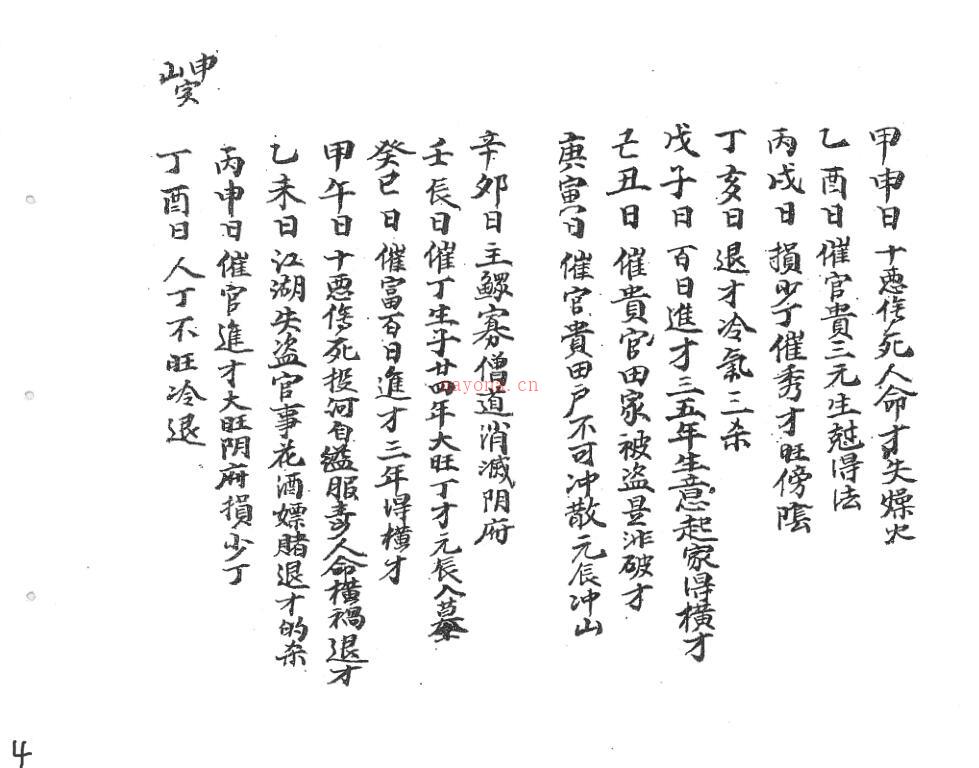 甲申日十悪俻死人命才失燥火
乙酉日催官貴三元生尅得法
丙戌日損少丁催秀才旺傍陰
丁亥日退才冷氣三杀
戊子日百日進才三五年生意起家得横才
己丑日催貴官田家被盗是非破才
庚寅日催官貴田户不可冲散元辰冲山
辛卯日主鰥寡僧道消滅阴府
壬辰日催丁生子廿四年大旺丁才元辰入墓
癸巳日催富百日進才三年得横才
甲午日十悪俻死投河自縊服毒人命横禍退才
乙未日江湖失盗官事花酒嫖賭退才的杀
丙申日催官進才大旺阴府損少丁
丁酉日人丁不旺冷退
申山寅
nayona.cn
4